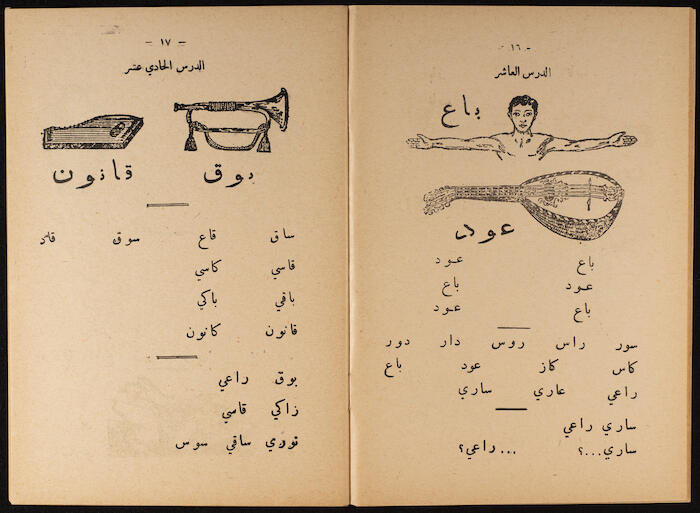 - ١٦ -
الدرس العاشر
باع
عود
باع عود
عود باع
باع عود
سور راس روس دار دور
كاس كاز عود باع
راعي عاري ساري
ساري راعي
ساري...؟ ...راعي؟
- ١٧ -
الدرس الحادي عشر
بوق قانون
ساق قاع سوق قاد
قاسي كاسي
باقي باكي
قانون كانون
بوق راعي
زاكي قاسي
نوري ساقي سوس